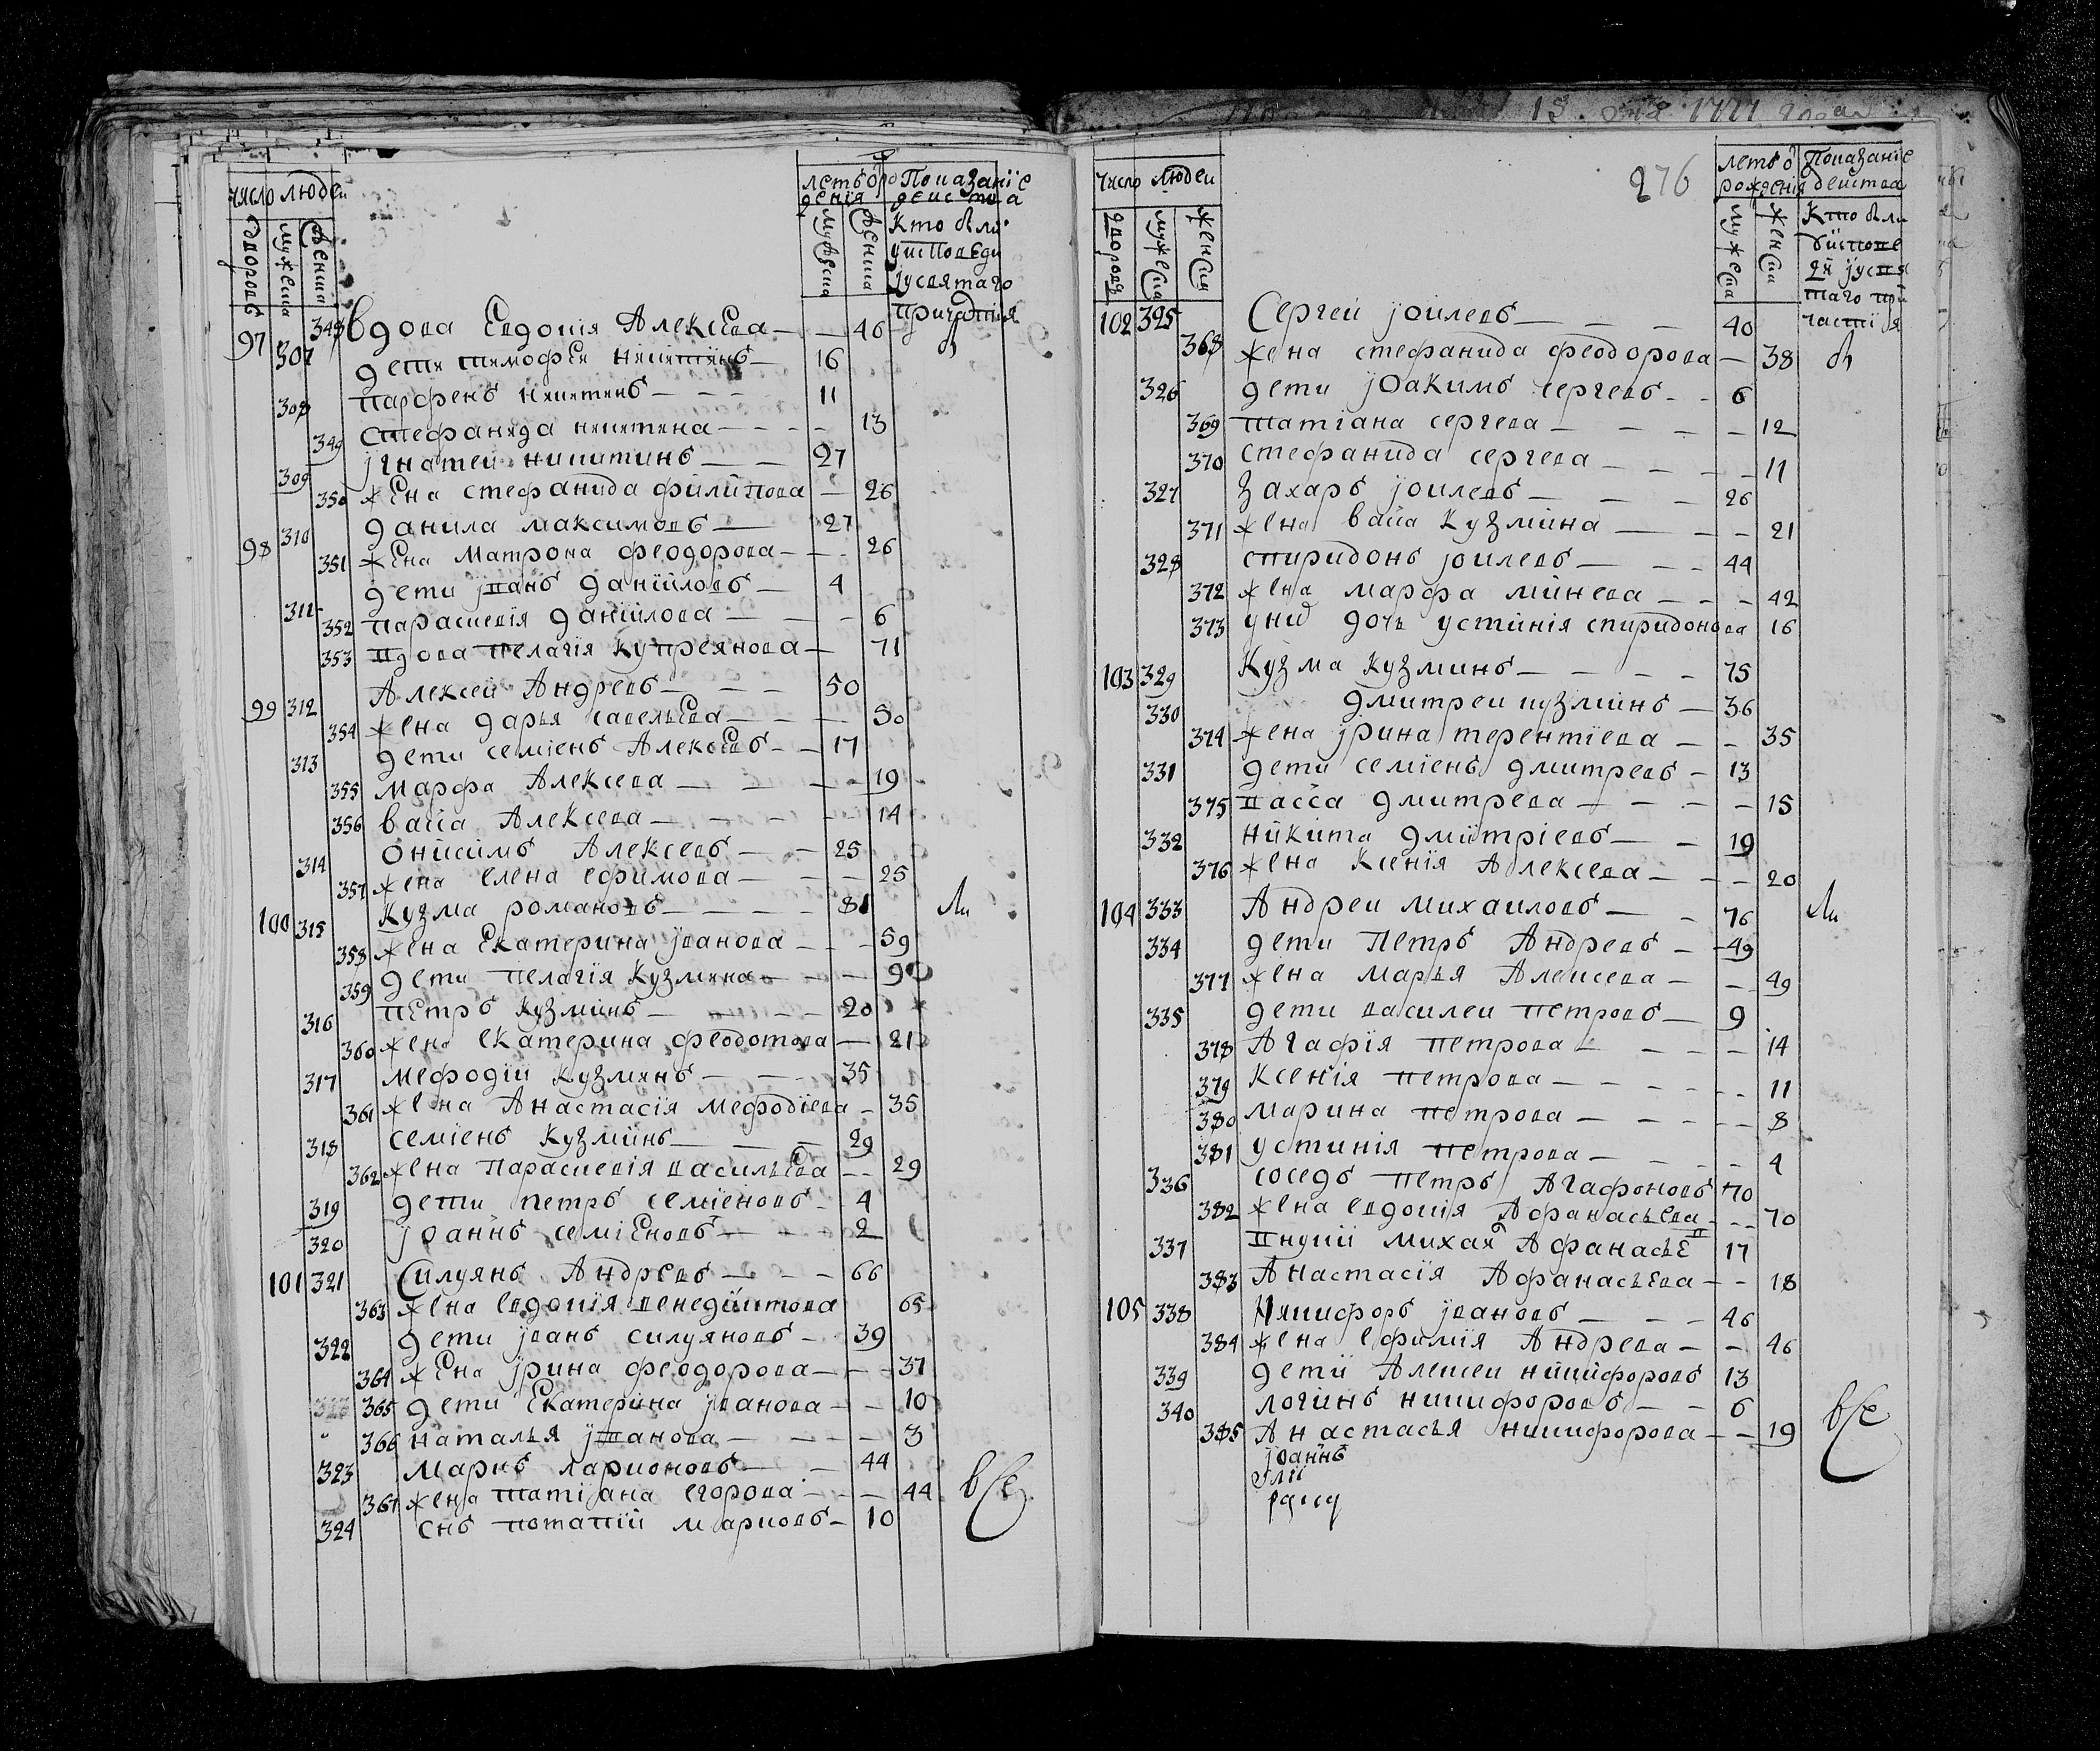 число людеи
дворовъ мужеска женска
летъ ѿ рождения
мужеска женска
Показанïе действа
кто были
у исповеди
и у святаго
причастия
97 348 вдова Евдокiя Алексѣева — 46
307 дети тимофеи никитинъ — 16
308 парфенъ никитинъ — 11
349 стефанида никитина — 13
309 игнатеи никитинъ — 27
350 жена стефанида филипова — 26
98 310 данила максимовъ — 27
351 жена матрона феодорова — 26
311 дети иванъ данïиловъ — 4
352 параскевiя данïилова — 6
353 вдова пелагiя купреянова — 71
99 312 Алексеи Андревъ — 50
354 жена дарья савельева — 50
313 дети семiенъ Алексѣевъ — 17
355 марфа Алексева — 19
356 васса Алексева — 14
314 онисимъ Алексевъ — 25
357 жена елена ефимова — 25
100 315 кузма романовъ — 81 ли
358 жена Екатерина iванова — 59
359 дети пелагïя кузмина — 90
316 петръ кузминъ — 20
360 жена екатерина феодотова — 21
317 мефодïи кузминъ — 35
361 жена Анастасiя мефодïева — 35
318 семiенъ кузминъ — 29
362 жена параскевïя васильева — 29
319 дети петръ семiеновъ — 4
320 iоаннъ семiеновъ — 2
101 321 Силуянъ Андревъ — 66
363 жена евдокïя венедиктова 65
322 дети iванъ силуяновъ — 39
364 жена iрина феодорова — 37
365 дети Екатерина iванова — 10
366 наталья iванова — 3
323 маркъ ларионовъ — 44
367 жена татiана егорова — 44 все
324 снъ потапïи марковъ — 10
276
число людеи
дворовъ мужеска женска
летъ ѿ рожденiя
мужеска женска
Показанïе действа
кто были
у исповеди и у святаго причастiя
102 325 Сергеи iоилевъ — 40
368 жена стефанида феодорова — 38
326 дети iоакимъ сергевъ — 6
369 татiана сергева — 12
370 стефанида сергева — 11
327 захаръ iоилевъ — 26
371 жена васса кузмина — 21
328 спиридонъ iоилевъ — 44
372 жена марфа минева — 42
373 у них дочь устинiя спиридонова 16
103 329 Кузма кузминъ — 75
330 дмитреи кузминъ — 36
374 жена iрина терентïева — 35
331 дети семiенъ дмитревъ — 13
375 васса дмитрева — 15
332 никита дмитрïевъ — 19
376 жена ксенïя Алексева — 20
104 333 Андреи михаиловъ — 76 ли
334 дети петръ Андревъ — 49
377 жена марья Алексева — 49
335 дети василеи петровъ — 9
378 Агафiя петрова — 14
379 ксенïя петрова — 11
380 марина петрова — 8
381 устинiя петрова — 4
336 соседъ петръ Агафоновъ 70
382 жена евдокiя Афанасьева — 70
337 внуки михаи Афанасьев 17
383 Анастасïя Афанасьева — 18
105 338 никифоръ iвановъ — 46
384 жена ефимïя Андрева — 46
339 дети Алексеи никифоровъ 13
340 логинъ никифоровъ — 6
385 Анастасья никифорова — 19 все
iоаннъ